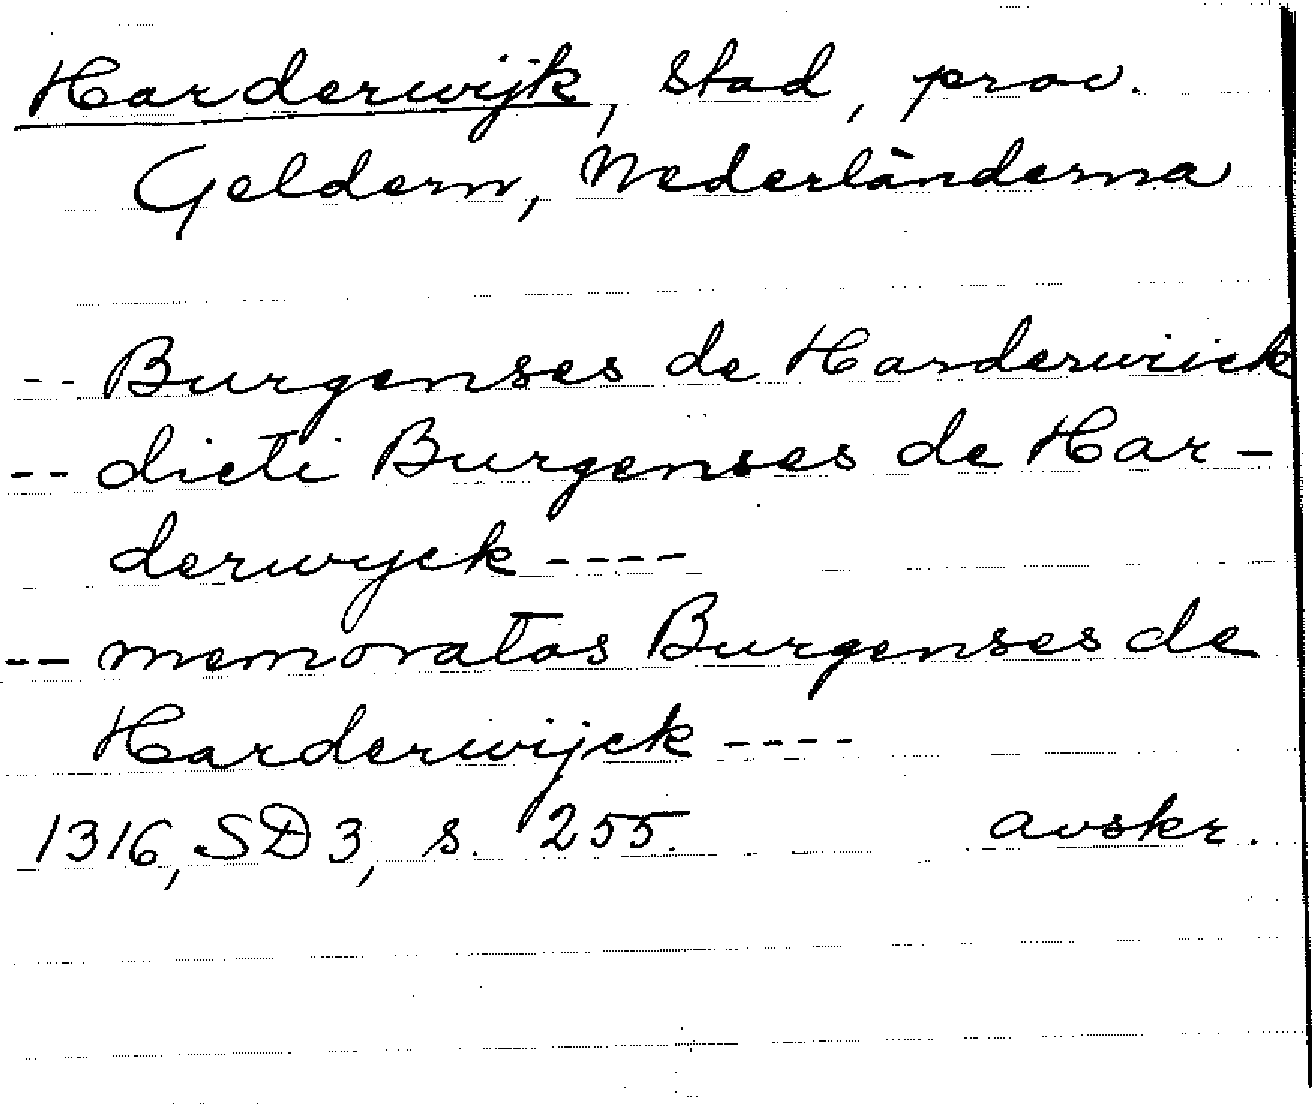 Harderwijk, stad, prov.
Geldern, Nederländerna
-- Burgenses de Harderwiick
-- dicti Burgenses de Har-
derwyck ----
-- memoratos Burgenses de
Harderwijck ----
1316, SD 3, s. 255. avskr.